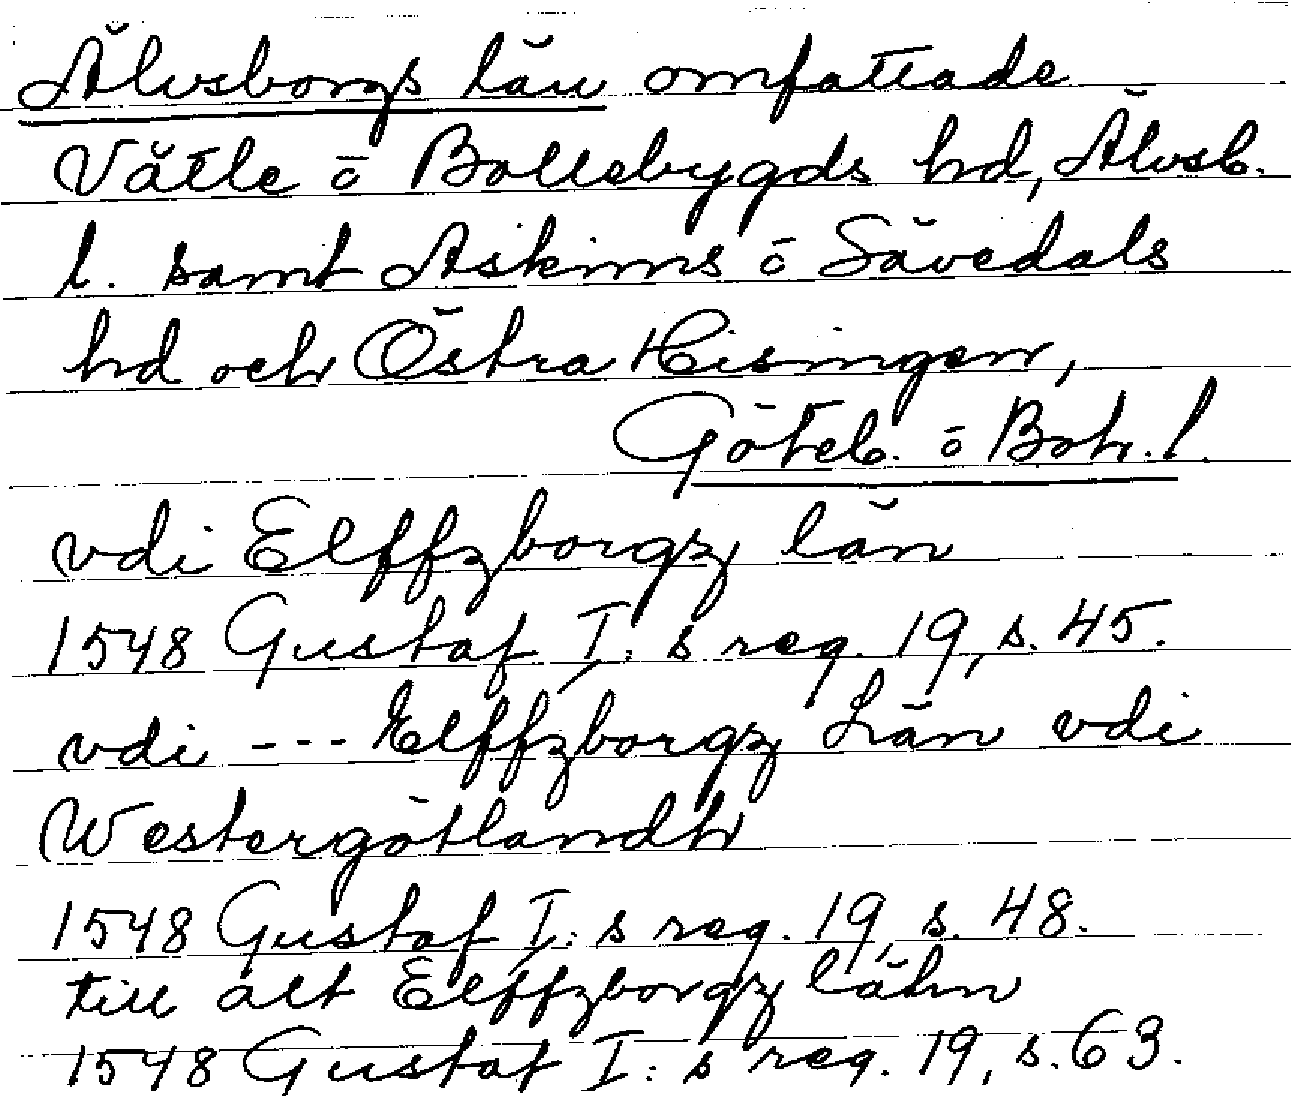 Älvsborgs län omfattade
Vätle ō Bollebygds hd, Älvsb.
l. samt Askims ō Sävedals
hd och Östra Hisingen,
Göteb. ō Boh. l.
vdi Elffzborgz län
1548 Gustaf I:s reg. 19, s. 45.
vdi --- Elffzborgz Län vdi
Westergötlandh
1548 Gustaf I:s reg. 19, s. 48.
till alt Elffzborgz lähn
1548 Gustaf I:s reg. 19, s. 63.